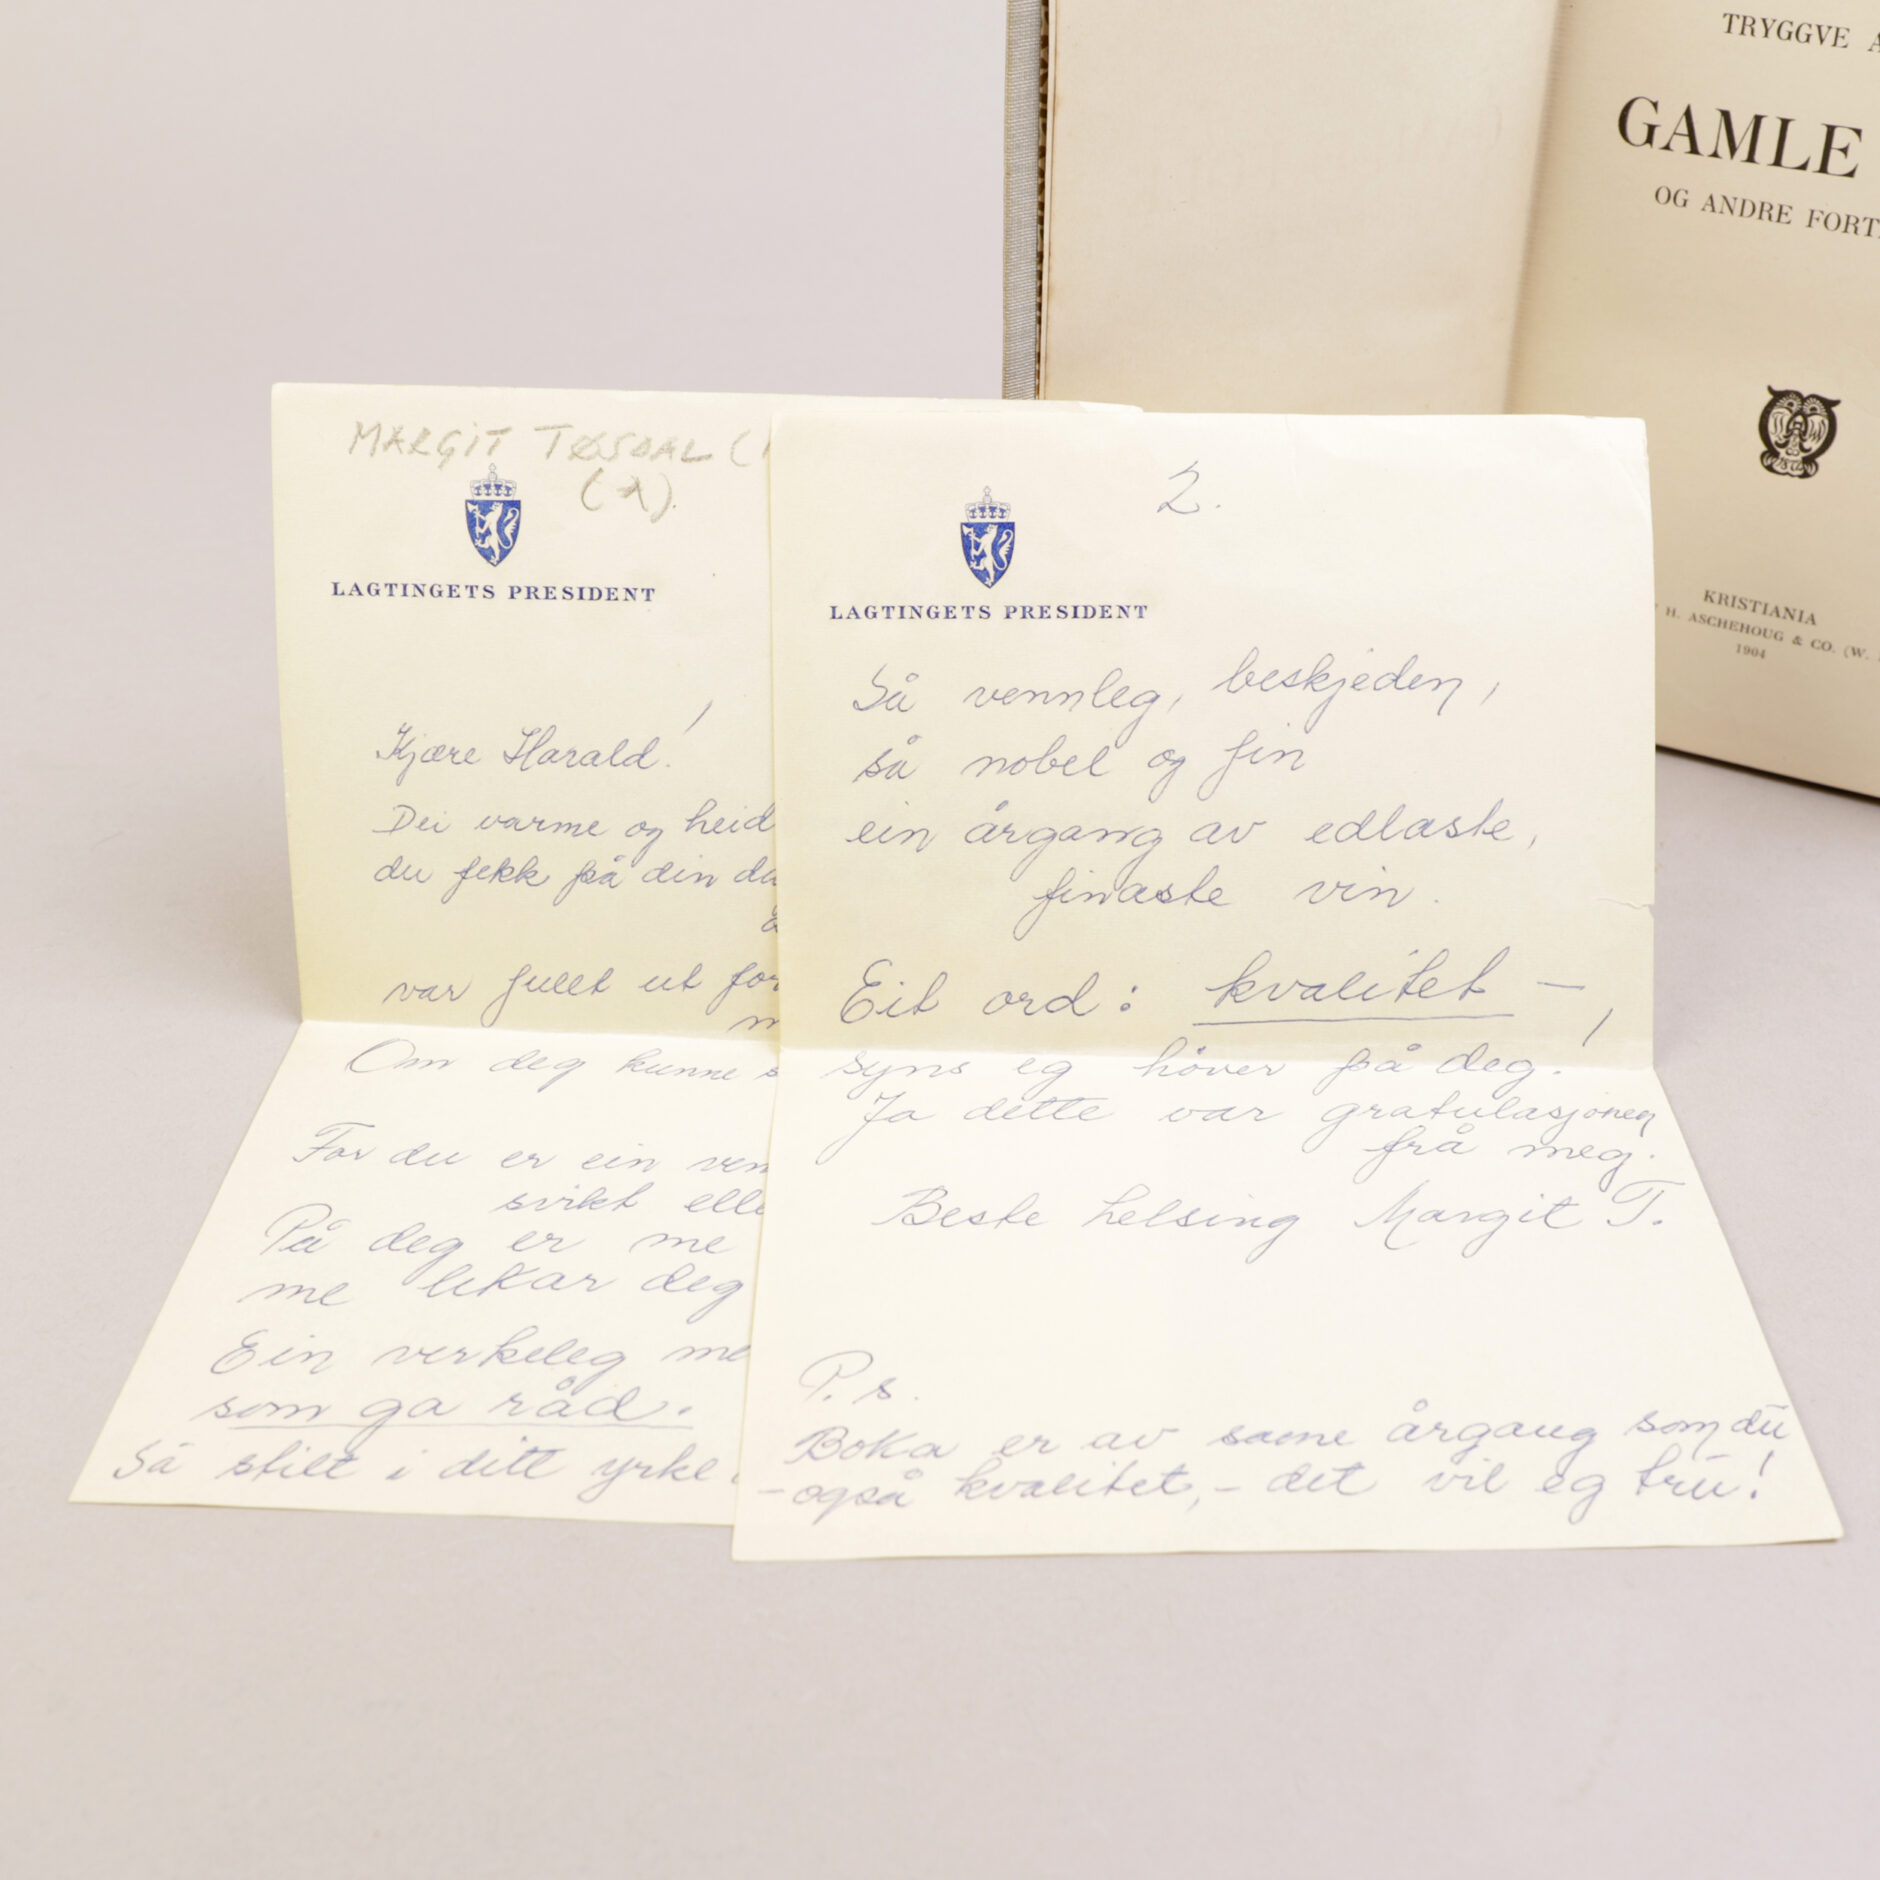 TRYGGVE A
GAMLE
OG ANDRE FORT
KRISTIANIA
H. ASCHEHOUG & CO. (W.
1904
MARGIT TØSDAL (
(A).
LAGTINGETS PRESIDENT
Kjære Harald!
Dei varme og heid
du fekk på din da
var fullt ut for
m
Om deg kunne s
For du er ein ven
svikt elle
På deg er me
me likar deg
Ein verkeleg me
som ga råd.
Så stilt i ditt yrke
2.
LAGTINGETS PRESIDENT
Så vennleg, beskjeden,
så nobel og fin
ein årgang av edlaste,
finaste vin.
Eit ord: kvalitet –
syns eg høver på deg!
Ja dette var gratulasjonen
frå meg.
Beste helsing Margit T.
P.s.
Boka er av same årgang som du
– også kvalitet, – det vil eg tru!